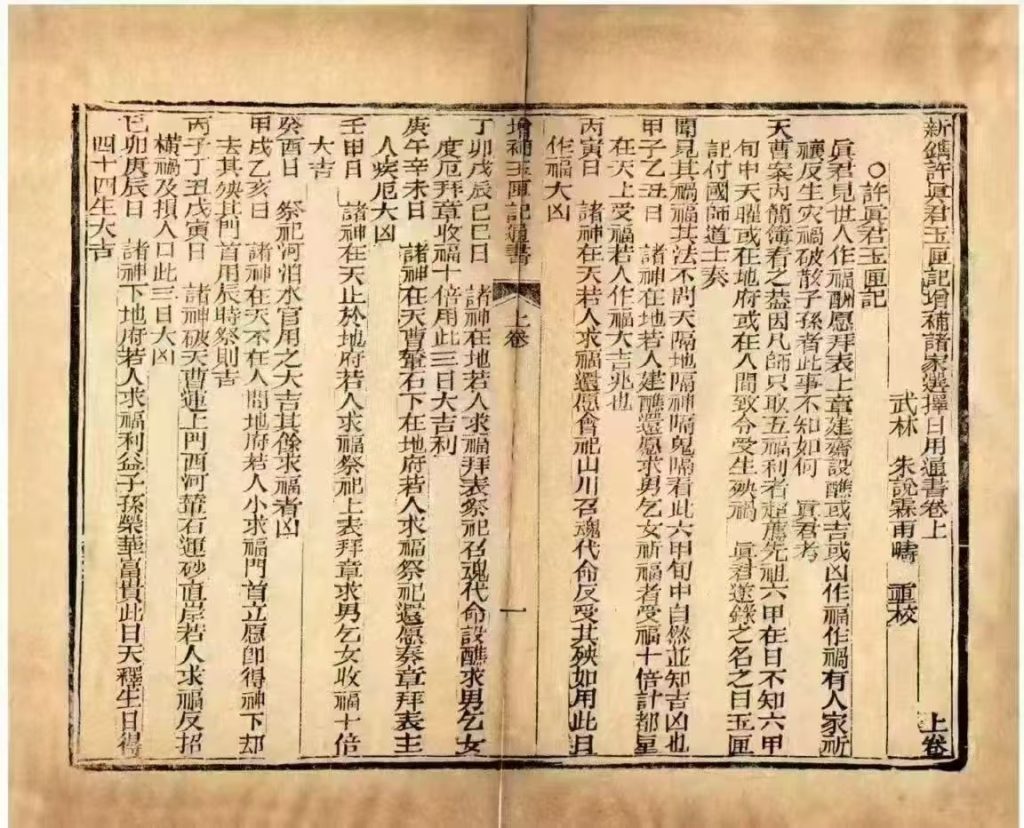 新鐫許眞君玉匣記增補諸家選擇日用通書卷上
武林　朱說霖雨疇　重校
上卷
○許眞君玉匣記
眞君見世人作福酬愿拜表上章建齋設醮或吉或凶作福作禍有人家祈
禳反生灾禍破散子孫者此事不知如何　眞君考
天曹案內簡簿看之葢因凡師只取五福利者超薦先祖六甲在日不知六甲
旬中天曜或在地府或在人間致令受生殃禍　眞君遂錄之名之曰玉匣
記付國師道士奏
聞見其禍福其法不問天隔地隔神隔鬼隔看此六甲旬中自然並知吉凶也
甲子乙丑日　諸神在地若人建醮還愿求男乞女祈福者受福十倍計都星
在天上受福若人作福大吉兆也
丙寅日　諸神在天若人求福還愿會祀山川召魂代命反受其殃如用此日
作福大凶
增補玉匣記通書　上卷　一
丁卯戊辰己巳日　諸神在地若人求福拜表祭祀召魂代命設醮求男乞女
度厄拜章收福十倍用此三日大吉利
庚午辛未日　諸神在天曹輦石下在地府若人求福祭祀還愿奏章拜表主
人疾厄大凶
壬申日　諸神在天止於地府若人求福祭祀上表拜章求男乞女收福十倍
大吉
癸酉日　祭祀河泊水官用之大吉其餘求福者凶
甲戌乙亥日　諸神在天不在人間地府若人小求福門首立愿卽得神下却
去其殃其門首用辰時祭則吉
丙子丁丑戊寅日　諸神破天曹運上門西河輦石運砂直岸若人求福反招
橫禍及損人口此三日大凶
已卯庚辰日　諸神下地府若人求福利益子孫榮華富貴此日天釋生日得
四十四生大吉